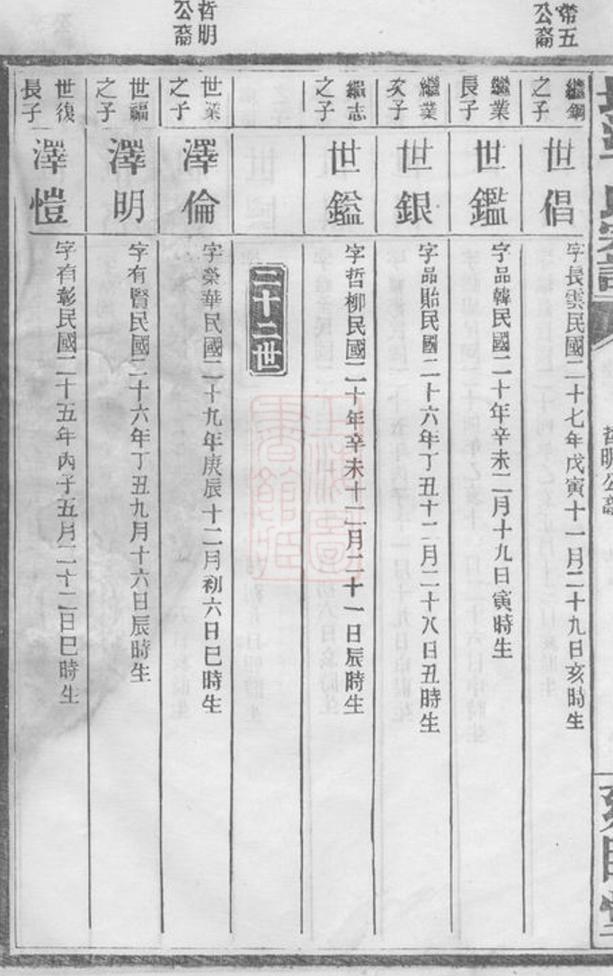 帝五
公裔
繼鋼
之子
世倡
字長雲民國二十七年戊寅十一月二十九日亥時生
繼業
長子
世鑑
字品韓民國二十年辛未二月十九日寅時生
繼業
次子
世銀
字品貽民國二十六年丁丑十二月二十八日丑時生
繼志
之子
世鎰
字哲柳民國二十年辛未十二月二十一日辰時生
二十二世
哲明
公裔
世業
之子
澤倫
字榮華民國二十九年庚辰十二月初六日巳時生
世福
之子
澤明
字有賢民國二十六年丁丑九月十六日辰時生
世復
長子
澤愷
字有彰民國二十五年丙子五月二十二日巳時生